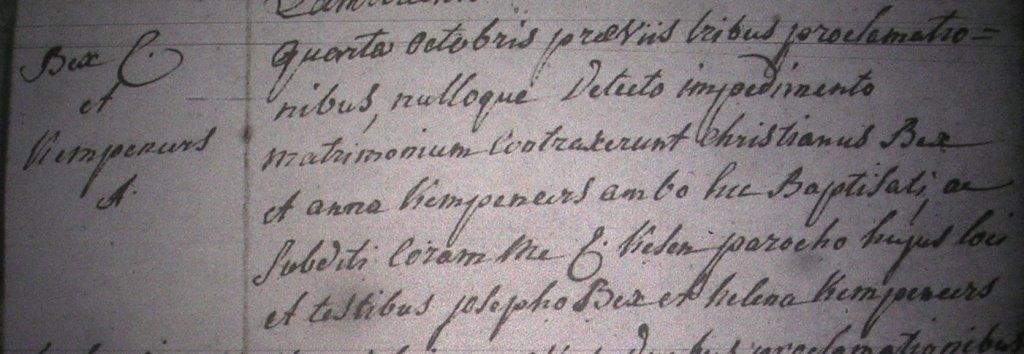 Bex C.
et
Kempeneers
A.
quarta octobris præviis tribus proclamatio=
nibus, nulloque detecto impedimento
matrimonium Contraxerunt Christianus Bex
et anna Kempeneers ambo hic Baptisati, ac
Subditi Coram me C. Kelen parocho hujus loci
et testibus josepho Bex et helena Kempeneers
proclamationibus